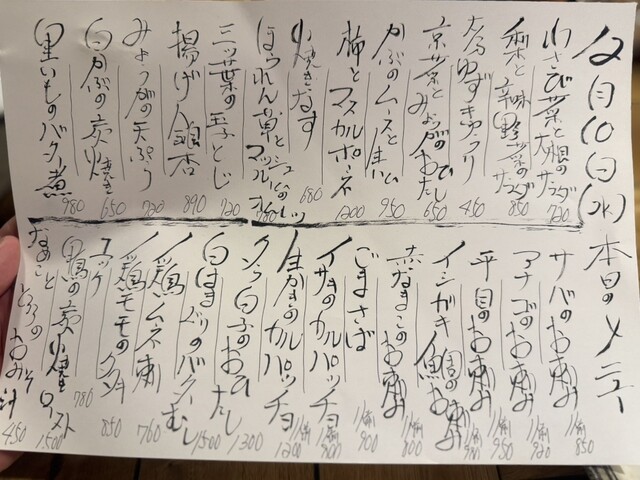 12月10日(水) 本日のメニュー
わさび菜と大根のサラダ 720
梨と辛味野菜のサラダ 850
たたゆずきゅうり 450
京菜とみょうがのおひたし 650
かぶのムースと生ハム 950
柿とマスカルポーネ 1200
焼きなす 680
ほうれん草とマッシュルームのソテー 780
三ッ葉の玉子とじ 720
揚げ銀杏 890
みょうがの天ぷら 720
白かぶの炭火焼き 650
里いものバター煮 980
サバのお刺身 1人前 850
アナゴのお刺身 1人前 920
平目のお刺身 1人前 950
イシガキ鯛のお刺身 1人前 980
赤なまこのお刺身 1人前 800
ごまさば 1人前 900
イサキのカルパッチョ 1人前 900
生かきのカルパッチョ 1人前 1200
タラ白子のおひたし 1300
白はまぐりのバターむし 1500
鶏ムネ刺 760
鶏モモのタタキ 850
ユッケ 780
鴨の炭火焼きロースト 1500
なめこととろろのおみそ汁 450